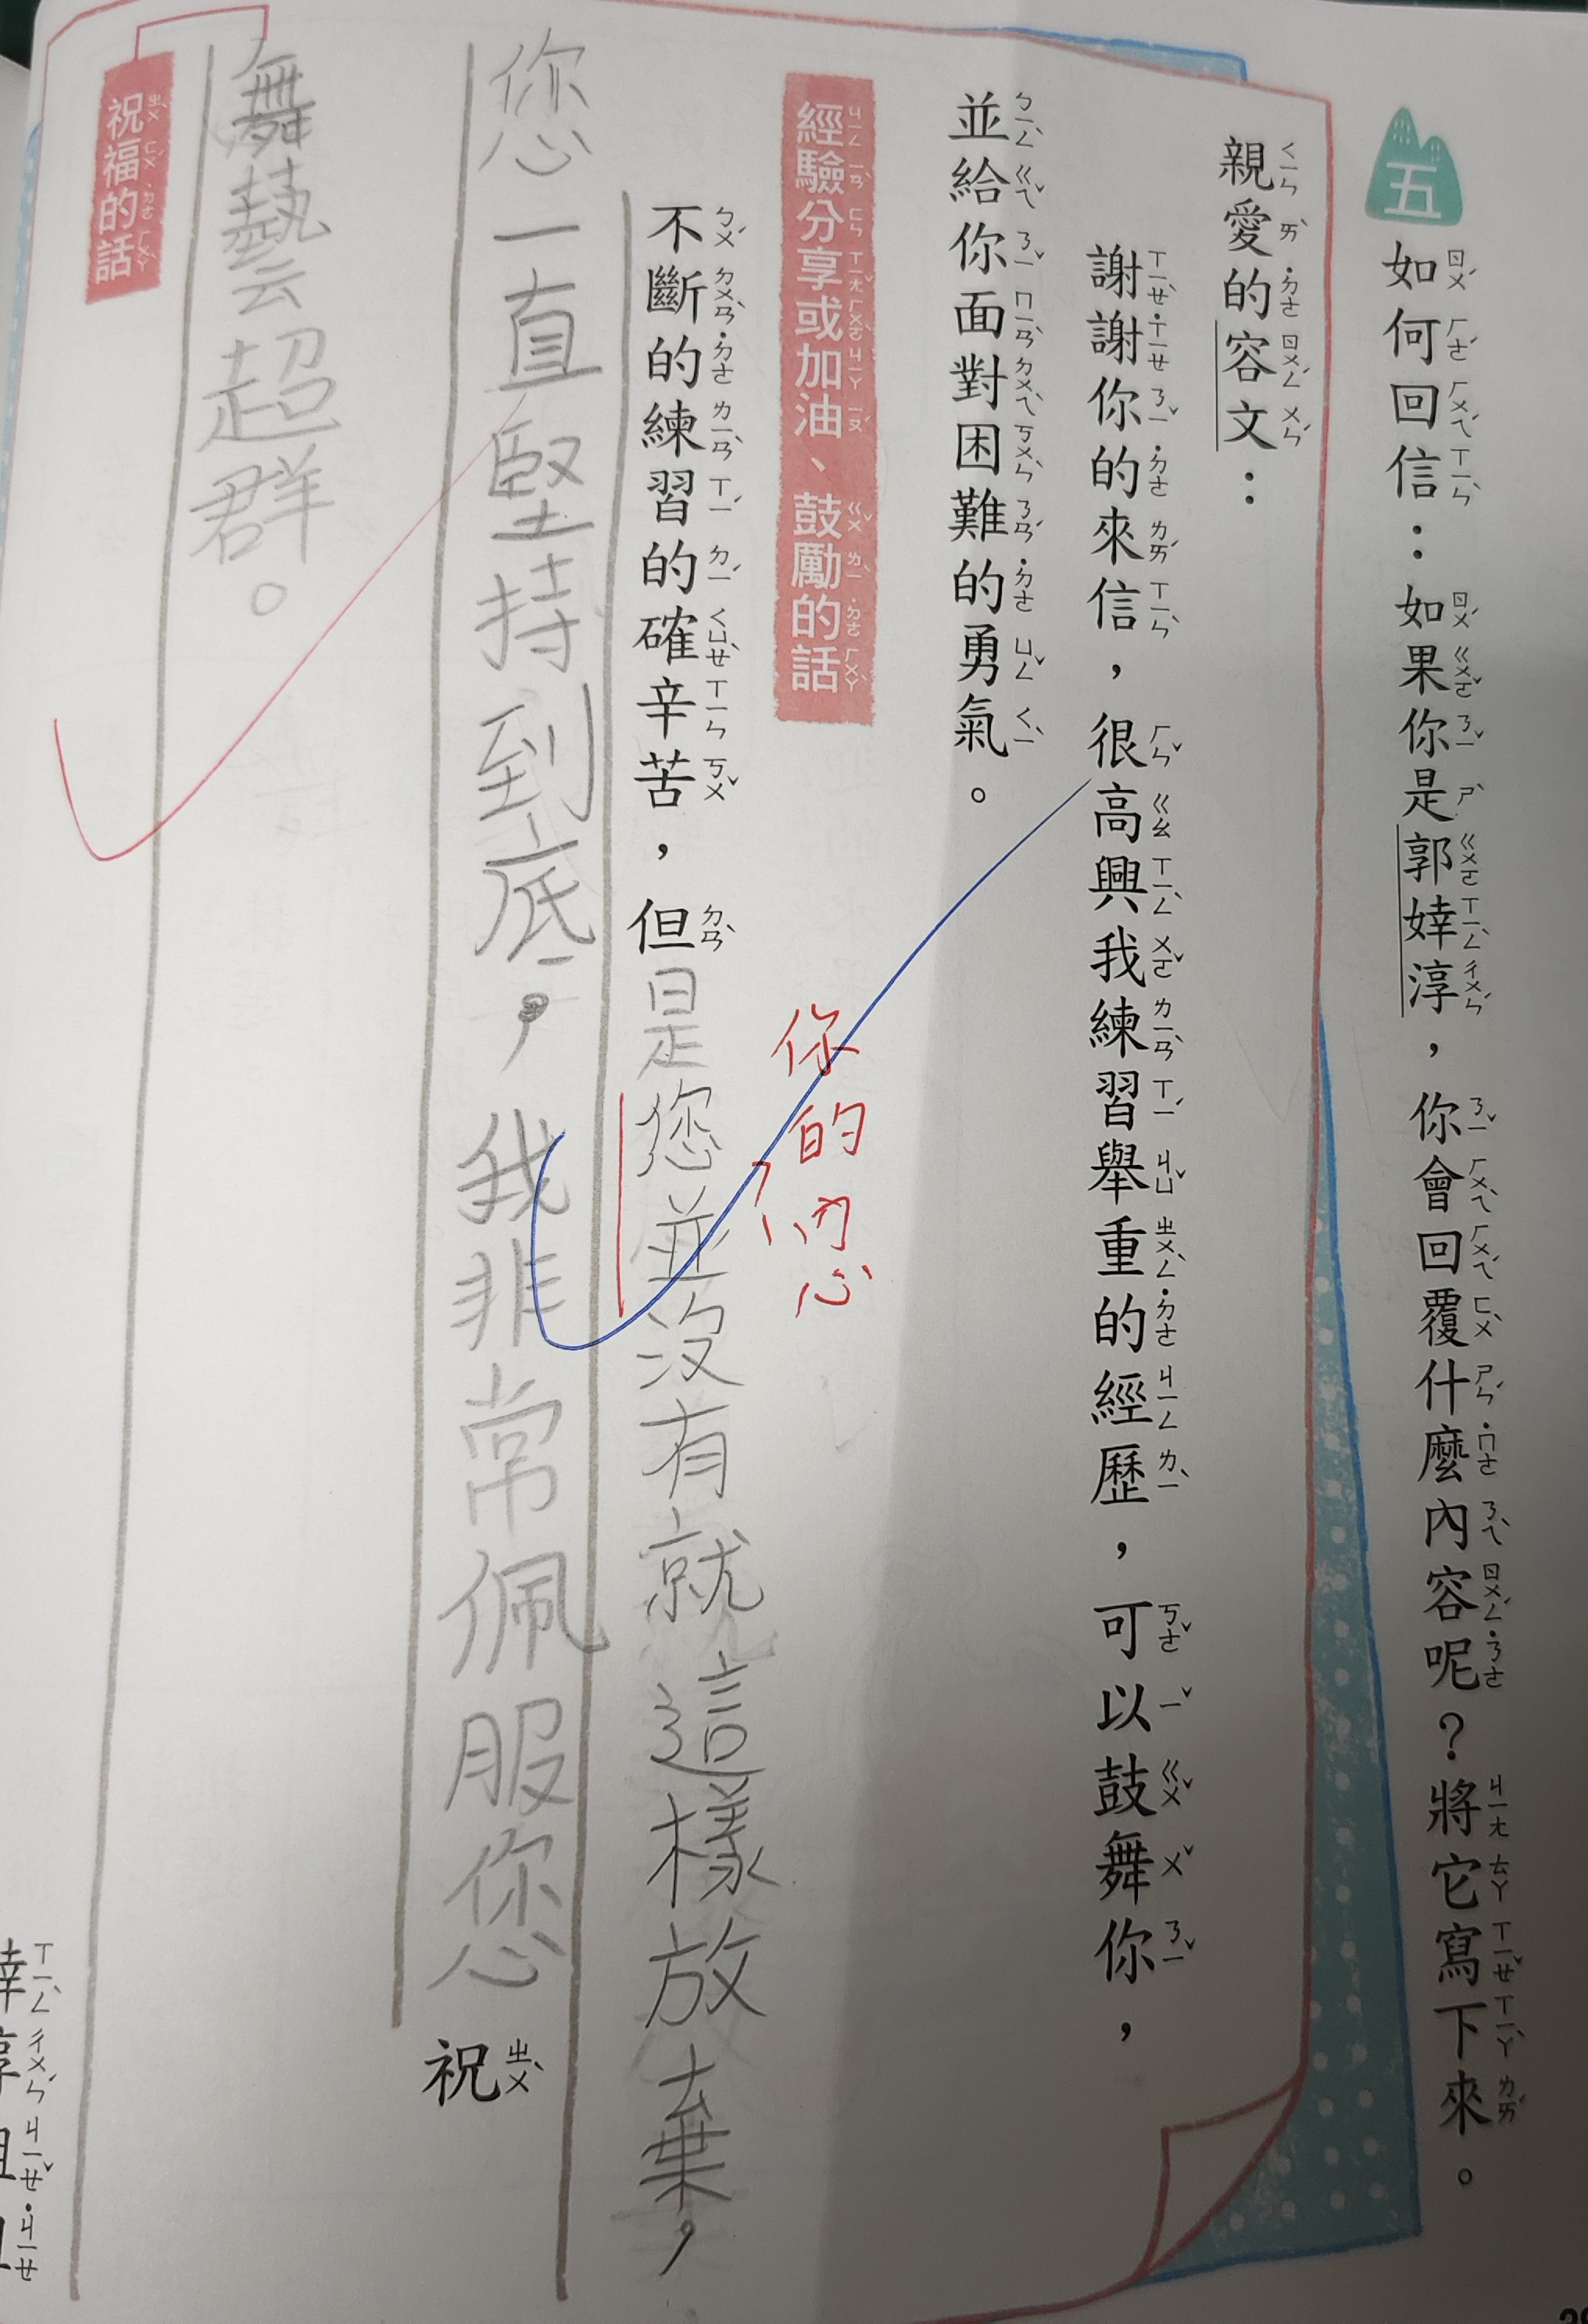 五
如何回信：如果你是郭婞淳，你會回覆什麼內容呢？將它寫下來。
親愛的容文：
謝謝你的來信，很高興我練習舉重的經歷，可以鼓舞你，
並給你面對困難的勇氣。
經驗分享或加油、鼓勵的話
你的內心
不斷的練習的確辛苦，但是您並沒有就這樣放棄，
您一直堅持到底，我非常佩服您
祝
舞藝超群。
祝福的話
婞淳姐姐